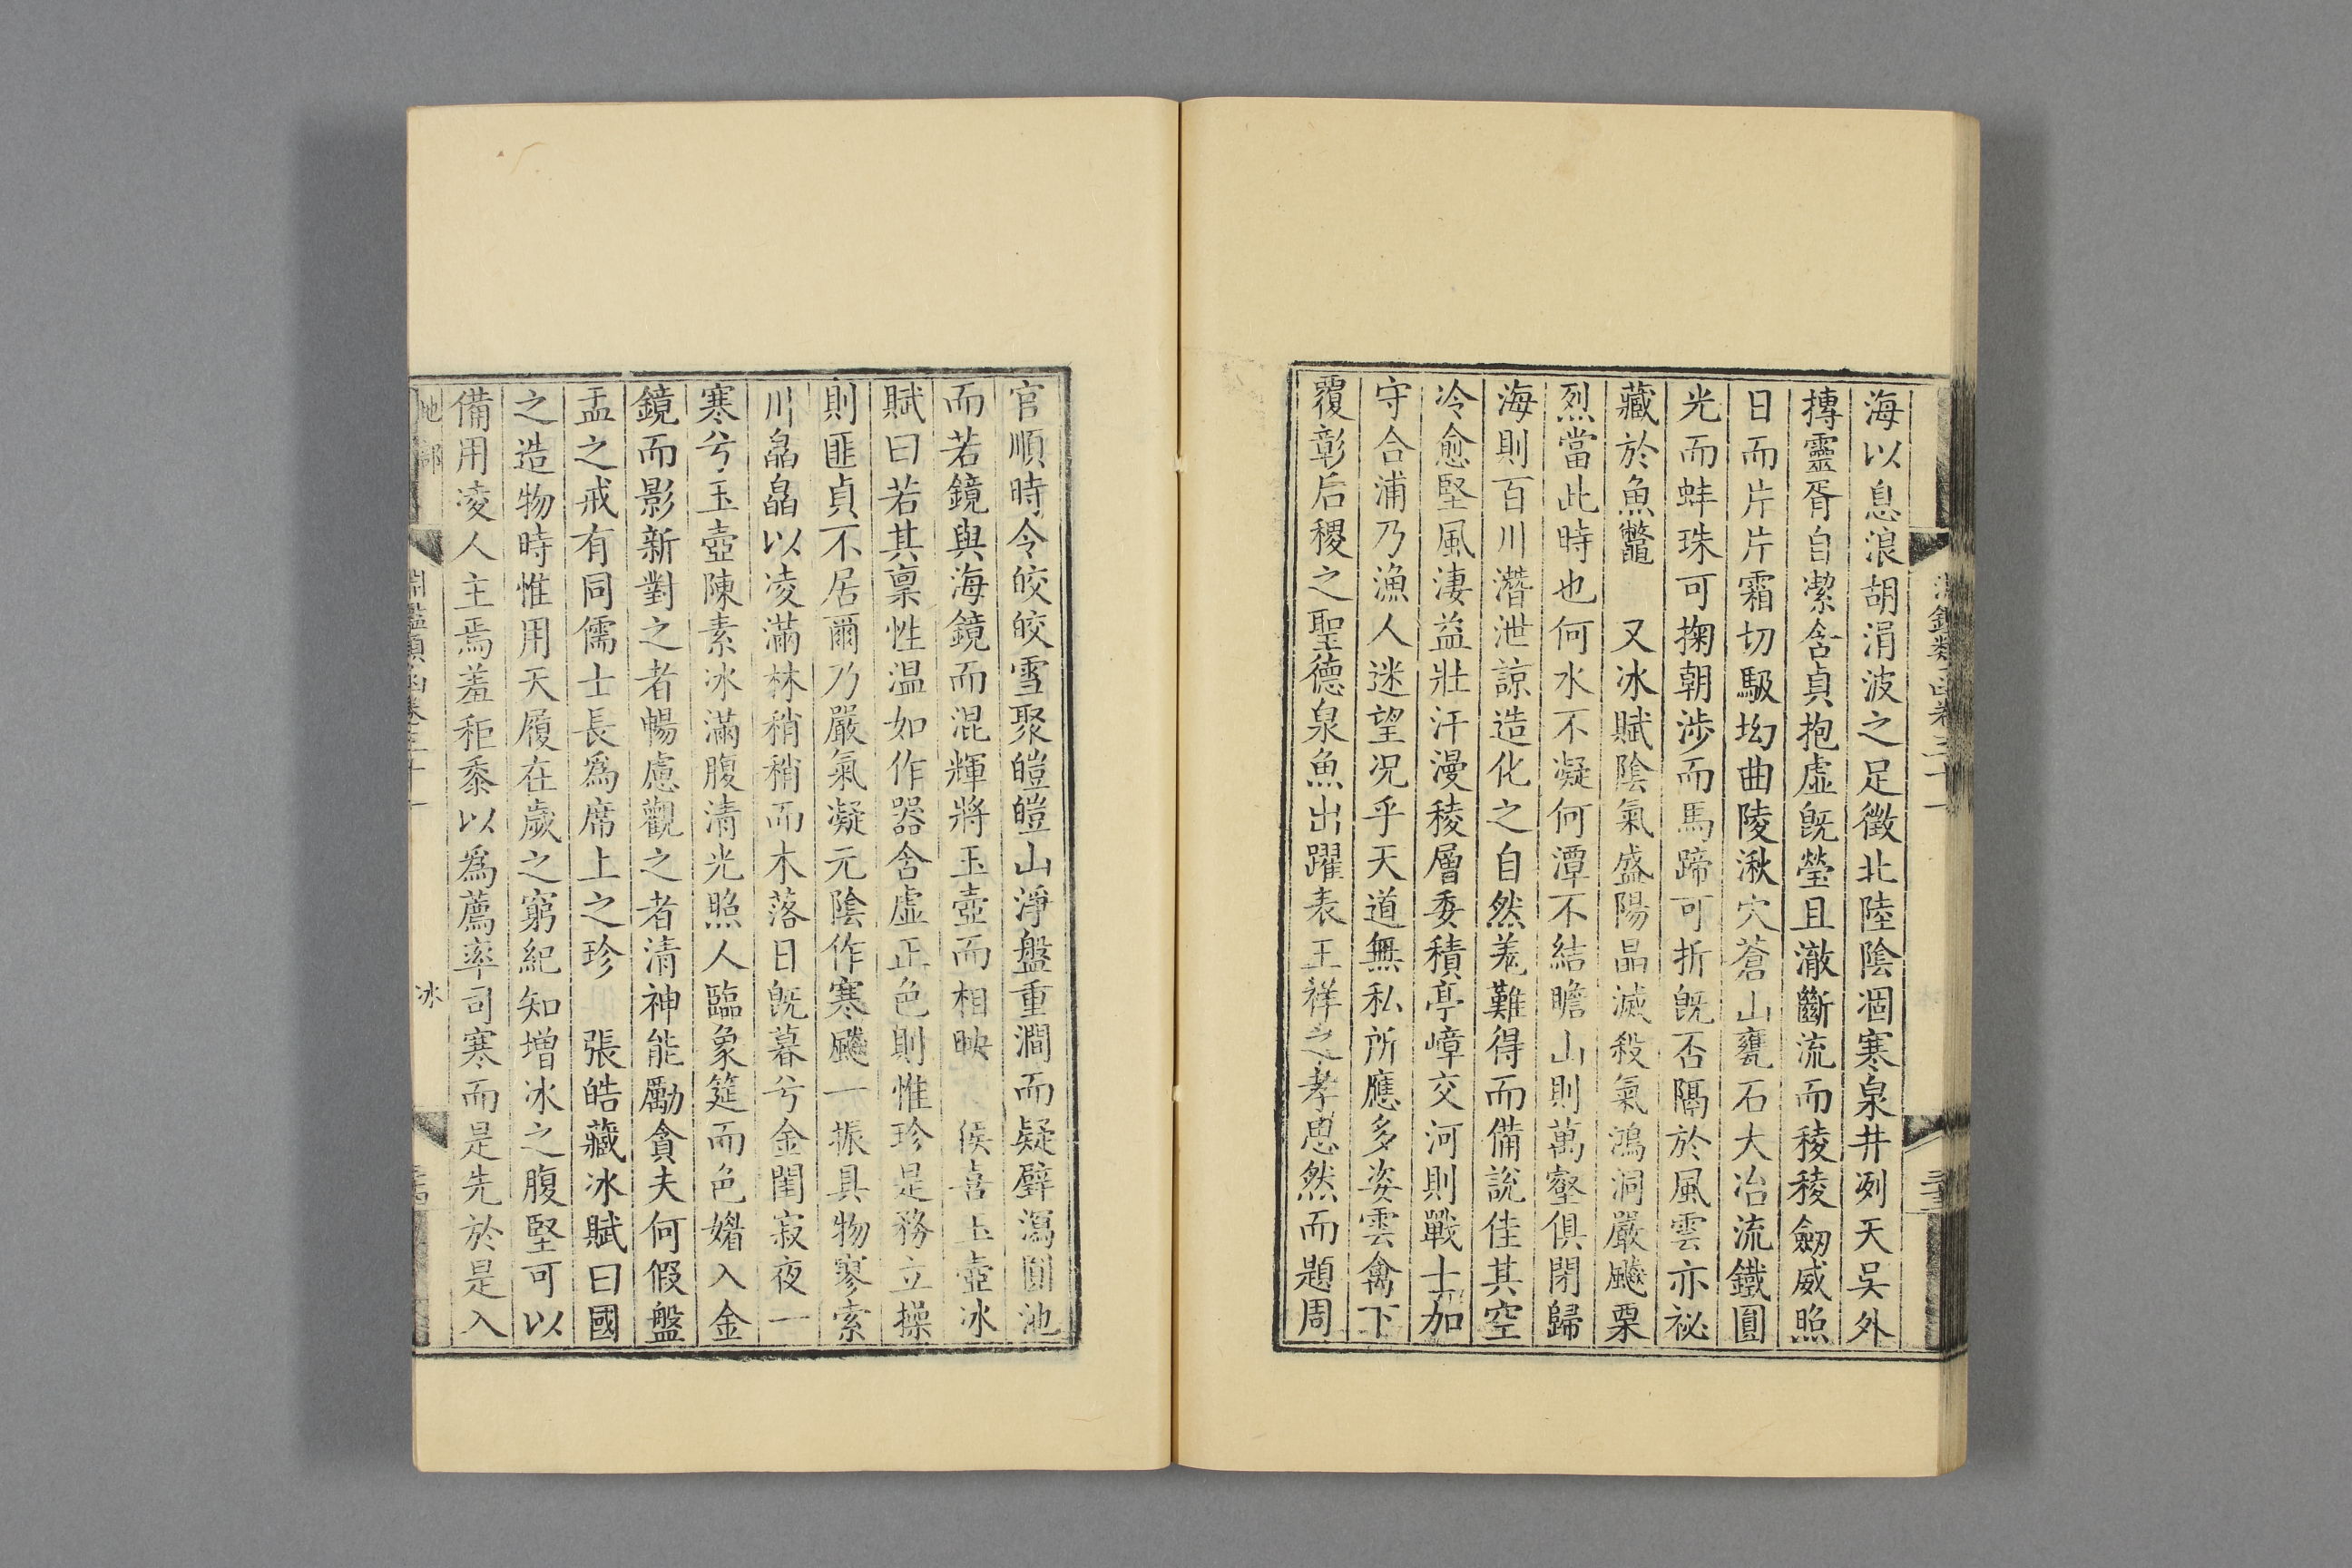 海以息浪胡涓波之足徵北陸陰涸寒泉井冽天吳外
摶靈胥自潔含貞抱虛旣瑩且澈斷流而稜稜劒威照
日而片片霜切馺坳曲陵湫穴蒼山甕石大冶流鐵圓
光而蚌珠可掬朝涉而馬蹄可折旣否隔於風雲亦祕
藏於魚鼈　又冰賦陰氣盛陽晶滅殺氣鴻洞嚴飈栗
烈當此時也何水不凝何潭不結瞻山則萬壑俱閉歸
海則百川潛泄諒造化之自然羌難得而備說佳其空
冷愈堅風淒益壯汗漫稜層委積亭嶂交河則戰士加
守合浦乃漁人迷望况乎天道無私所應多姿雲禽下
覆彰后稷之聖德泉魚出躍表王祥之孝思然而題周
官順時令皎皎雪聚皚皚山淨盤重澗而疑璧瀉圓池
而若鏡與海鏡而混輝將玉壺而相映　侯喜玉壺冰
賦曰若其稟性温如作器含虛正色則惟珍是務立操
則匪貞不居爾乃嚴氣凝元陰作寒飈一振具物寥索
川皛皛以凌滿林稍稍而木落日旣暮兮金閨寂夜一
寒兮玉壺陳素冰滿腹清光照人臨象筵而色媚入金
鏡而影新對之者暢慮觀之者清神能勵貪夫何假盤
盂之戒有同儒士長爲席上之珍　張皓藏冰賦曰國
之造物時惟用天履在歲之窮紀知增冰之腹堅可以
備用凌人主焉羞秬黍以爲薦率司寒而是先於是入
地部　淵鑑類函卷三十一　冰